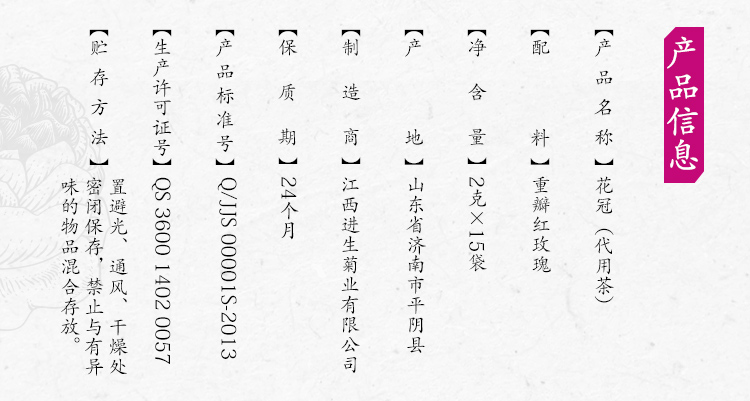 产品信息
【产品名称】花冠（代用茶）
【配料】重瓣红玫瑰
【净含量】2克×15袋
【产地】山东省济南市平阴县
【制造商】江西进生菊业有限公司
【保质期】24个月
【产品标准号】Q/JJS 00001S-2013
【生产许可证号】QS 3600 1402 0057
【贮存方法】置避光、通风、干燥处
密闭保存，禁止与有异
味的物品混合存放。